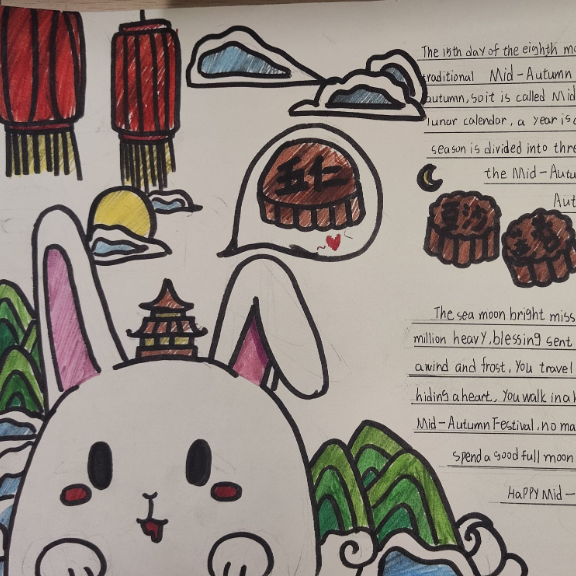 五仁
The 15th day of the eighth
traditional Mid-Autumn
autumn, so it is called Mid
lunar calendar, a year is
season is divided into
the Mid-
豆沙
The sea moon bright miss
million heavy, blessing sent
a wind and frost, You travel
hiding a heart, You walk in a
Mid-Autumn Festival, no
spend a good full moon
Happy Mid-